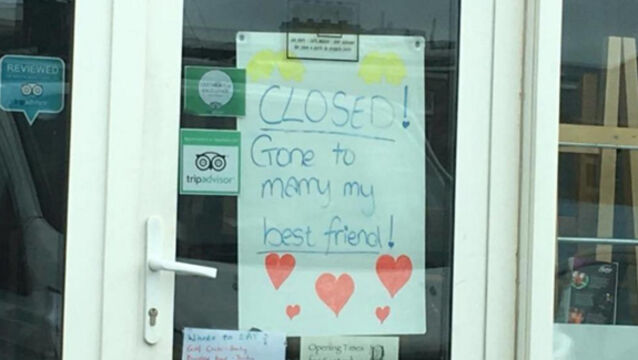 REVIEWED
tripadvisor
CLOSED!
Gone to
tripadvisor
marry my
best friend!
Where to EAT?
Opening Times